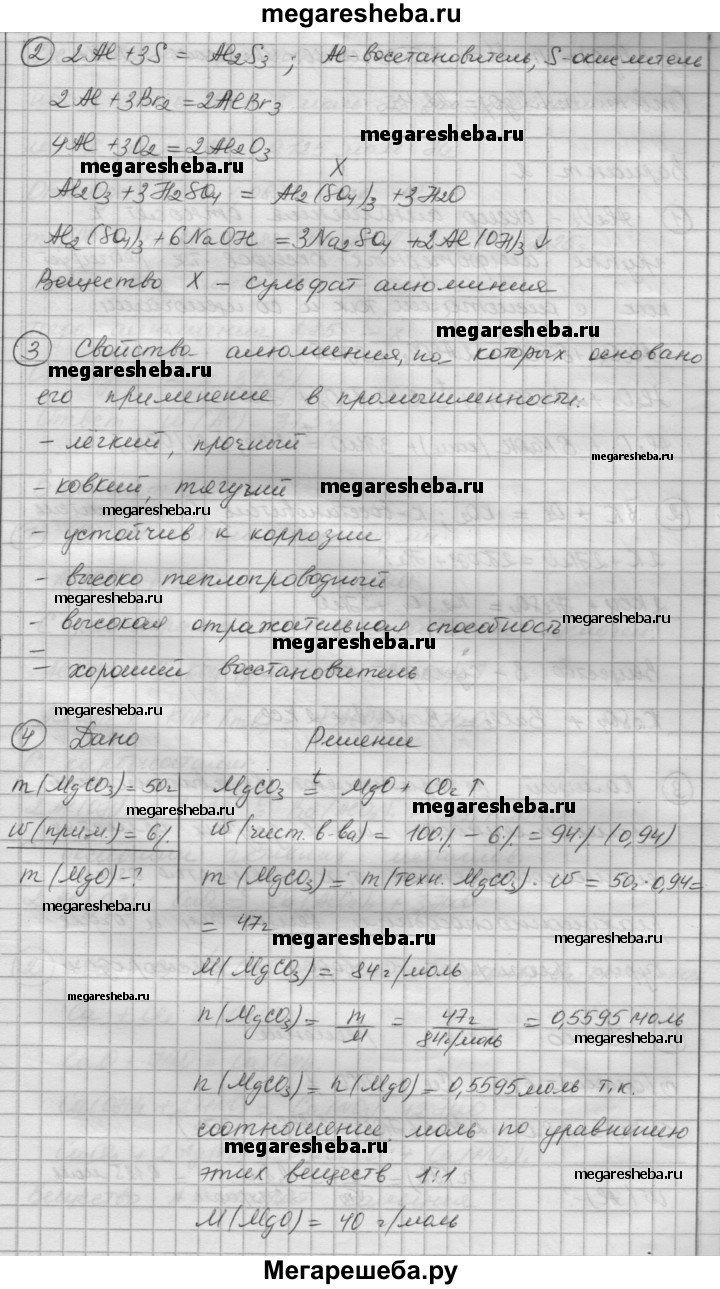 megaresheba.ru
② 2Al + 3S = Al2S3 ; Al-восстановитель, S-окислитель
2Al + 3Br2 = 2AlBr3
megaresheba.ru
4Al + 3O2 = 2Al2O3
megaresheba.ru X
Al2O3 + 3H2SO4 = Al2(SO4)3 + 3H2O
Al2(SO4)3 + 6NaOH = 3Na2SO4 + 2Al(OH)3↓
Вещество X – сульфат алюминия
megaresheba.ru
③ Свойства алюминия, на которых основано
megaresheba.ru
его применение в промышленности:
– лёгкий, прочный
megaresheba.ru
– ковкий, тягучий megaresheba.ru
megaresheba.ru
– устойчив к коррозии
– высоко теплопроводный
megaresheba.ru
– высокая отражательная способность megaresheba.ru
megaresheba.ru
– хороший восстановитель
megaresheba.ru
④ Дано Решение
m(MgCO3) = 50г MgCO3 t= MgO + CO2↑
megaresheba.ru megaresheba.ru
w(прим.) = 6% w(чист. в-ва) = 100% – 6% = 94% (0,94)
m(MgO) – ? m(MgCO3) = m(техн. MgCO3) · w = 50г · 0,94 =
megaresheba.ru
= 47г
megaresheba.ru megaresheba.ru
M(MgCO3) = 84 г/моль
megaresheba.ru
n(MgCO3) = m/M = 47г/84г/моль = 0,5595 моль
megaresheba.ru
n(MgCO3) = n(MgO) = 0,5595 моль т.к.
соотношение моль по уравнению
megaresheba.ru
этих веществ 1:1 megaresheba.ru
M(MgO) = 40 г/моль
Мегарешеба.ру